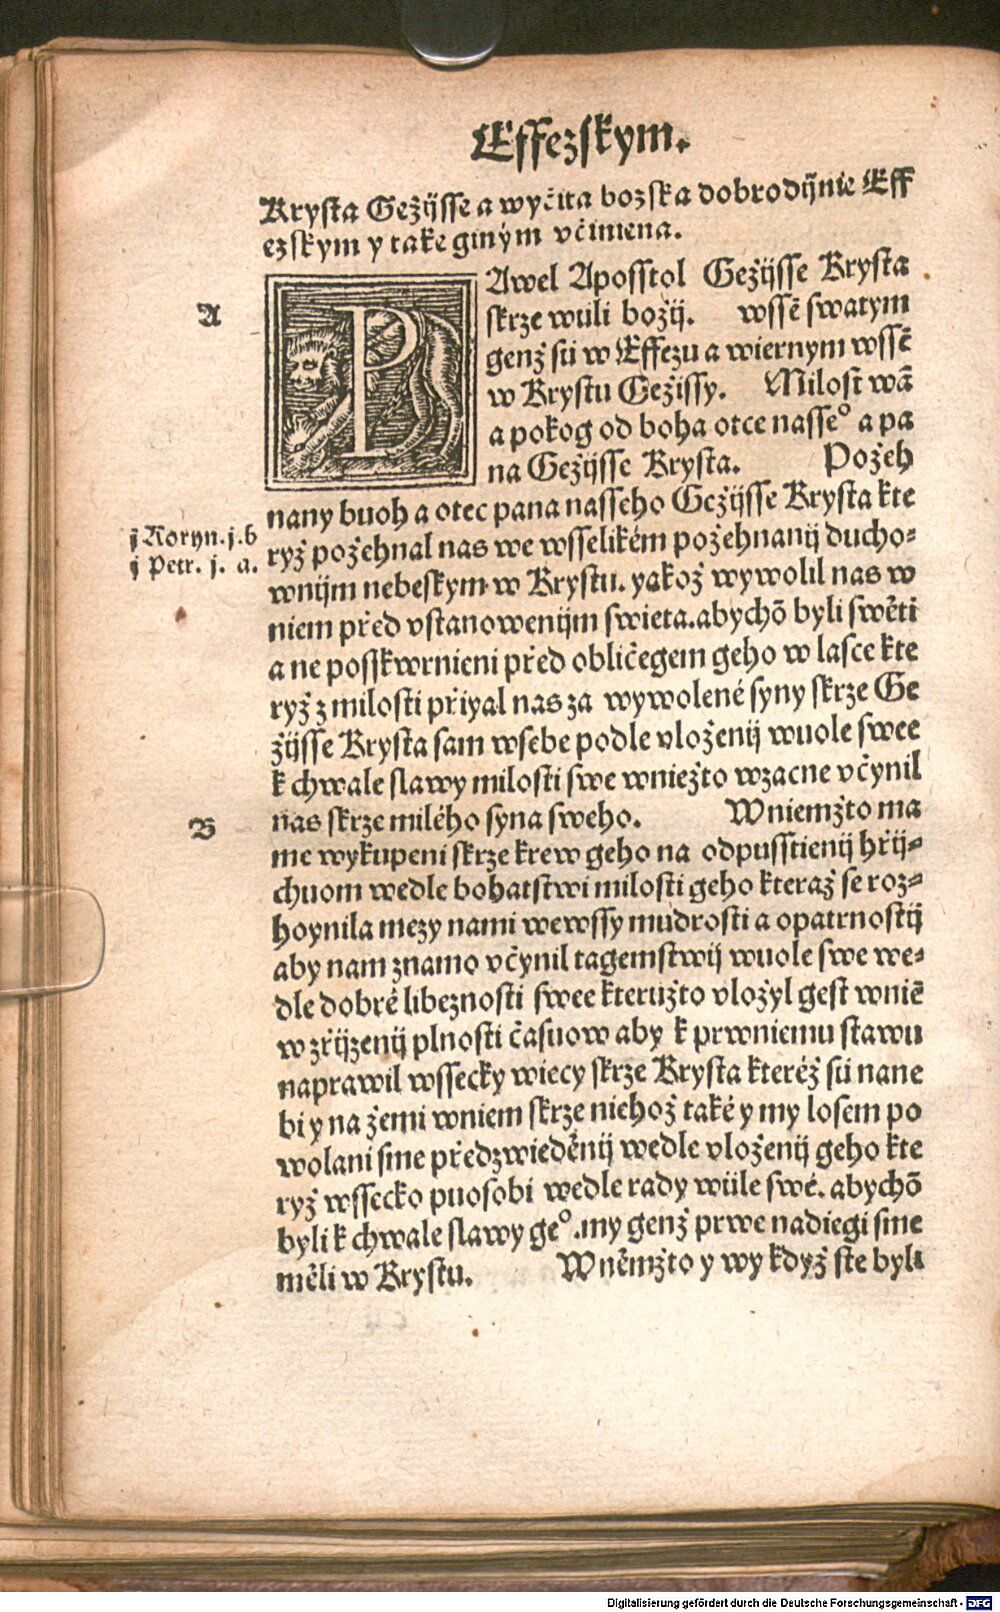 Effezskym.
Krysta Gežijsse a wyčita bozska dobrodijnie Eff
ezskym y take giným včinena.
A
PAwel Aposstol Gežijsse Krysta
skrze wuli božij. wssē swatym
genž sú w Effezu a wiernym wssē
w Krystu Gežissy. Milost wā
a pokog od boha otce nasseº a pa
na Gežijsse Krysta. Požeh
nany buoh a otec pana nasseho Gežijsse Krysta kte
j Koryn. j. b
ryž požehnal nas we wsselikém požehnanij ducho-
j Petr. j. a.
wnijm nebeskym w Krystu. yakož wywolil nas w
niem před vstanowenijm swieta. abychō byli swěti
a ne posskwrnieni před obličegem geho w lasce kte
ryž z milosti přiyal nas za wywolené syny skrze Ge
žijsse Krysta sam wsebe podle vloženij wuole swee
k chwale slawy milosti swe wniežto wzacne včynil
B
nas skrze milého syna sweho. Wniemžto ma
me wykupeni skrze krew geho na odpusstienij hřij-
chuom wedle bohatstwi milosti geho kteraž se roz-
hoynila mezy nami wewssy mudrosti a opatrnostij
aby nam znamo včynil tagemstwij wuole swe we-
dle dobré libeznosti swee kteružto vložyl gest wniē
w zřijzenij plnosti časuow aby k prwniemu stawu
naprawil wssecky wiecy skrze Krysta kteréž sú nane
bi y na žemi wniem skrze niehož také y my losem po
wolani sme předzwieděnij wedle vloženij geho kte
ryž wssecko puosobi wedle rady wúle swé. abychō
byli k chwale slawy geº. my genž prwe nadiegi sme
měli w Krystu. Wněmžto y wy když ste byli
Digitalisierung gefördert durch die Deutsche Forschungsgemeinschaft - DFG